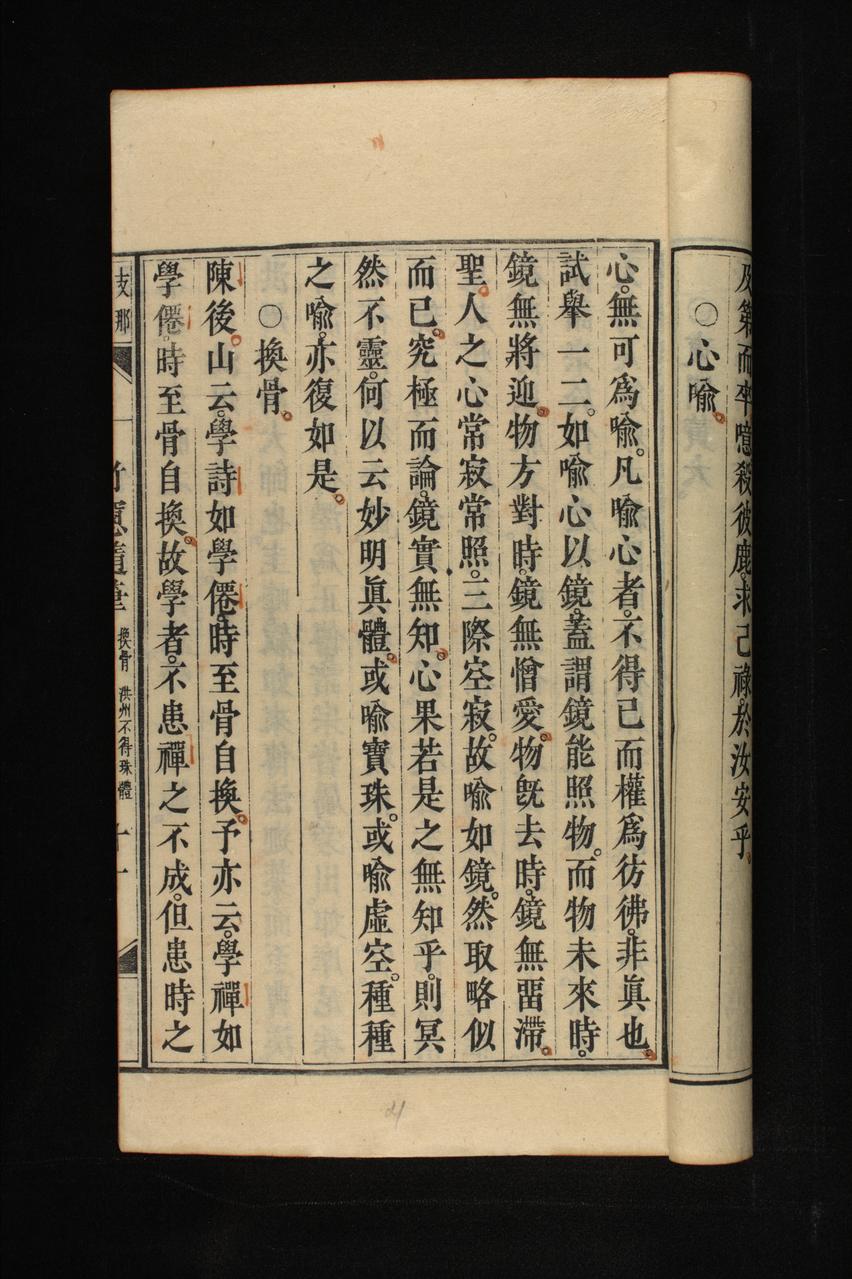 及第而卒噫殺彼鹿求己祿於汝安乎
○心喻
心無可爲喻凡喻心者不得已而權爲彷彿非眞也
試舉一二如喻心以鏡葢謂鏡能照物而物未來時
鏡無將迎物方對時鏡無憎愛物旣去時鏡無畱滯
聖人之心常寂常照三際空寂故喻如鏡然取略似
而已究極而論鏡實無知心果若是之無知乎則冥
然不靈何以云妙明眞體或喻寶珠或喻虛空種種
之喻亦復如是
○換骨
陳後山云學詩如學僊時至骨自換予亦云學禪如
學僊時至骨自換故學者不患禪之不成但患時之
支那
竹窻隨筆
換骨 洪州不得珠體
十一